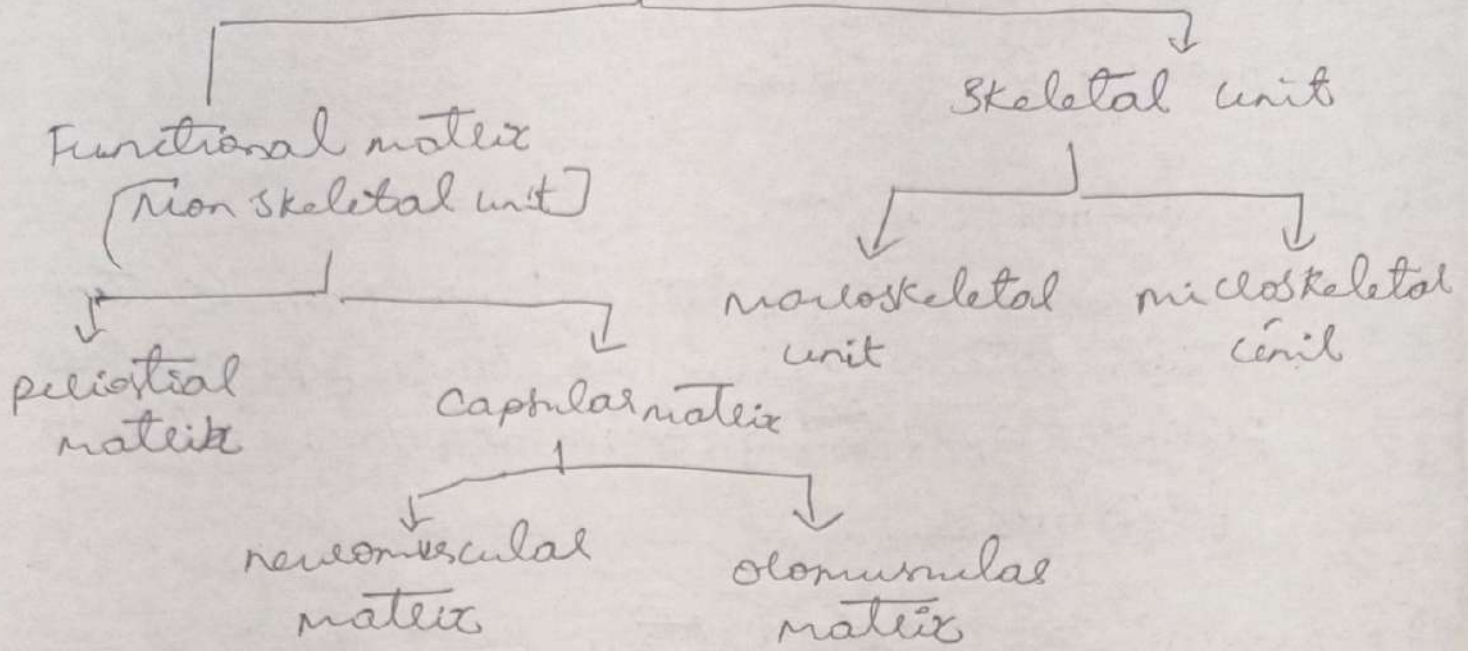 Skeletal unit
Functional matrix
[Non skeletal unit]
macroskeletal
unit
microskeletal
unit
periostial
matrix
Capsular matrix
neuromuscular
matrix
oromuscular
matrix